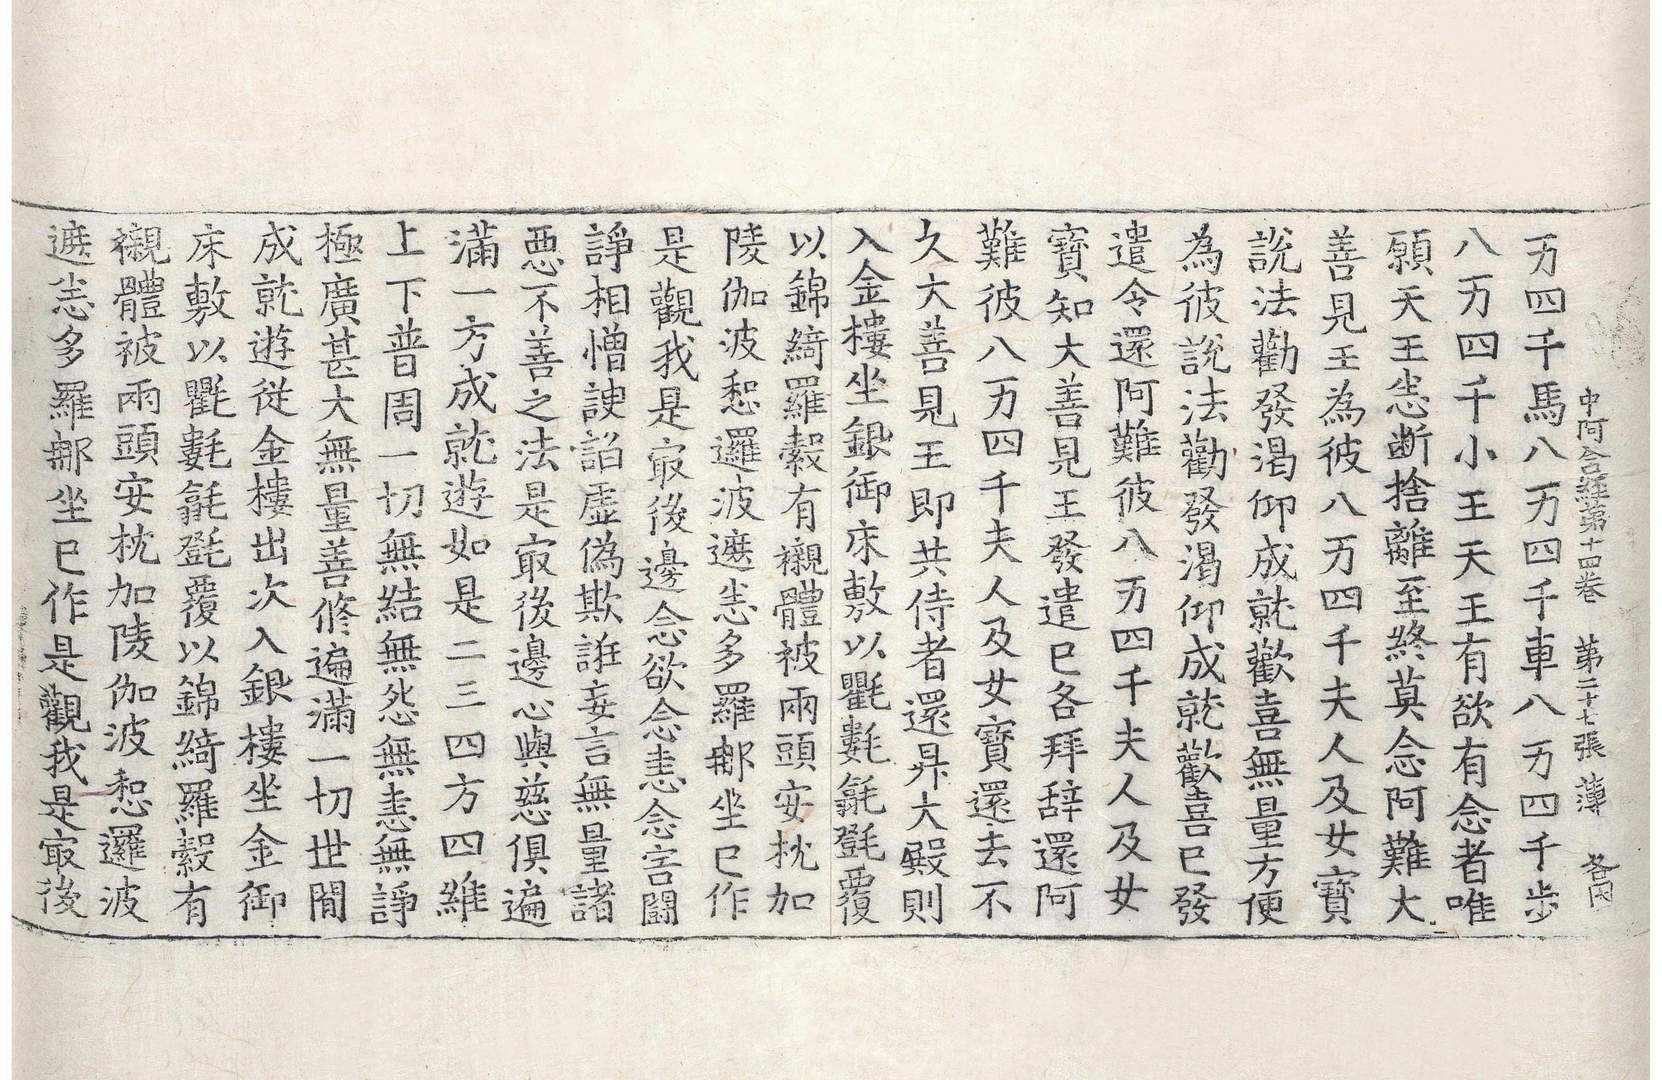 中阿含經第十四卷　第二十七張　薄
万四千馬八万四千車八万四千歩
八万四千小王天王有欲有念者唯
願天王恚断捨離至終莫念阿難大
善見王為彼八万四千夫人及女寶
說法勸發渴仰成就歡喜無量方便
為彼說法勸發渴仰成就歡喜已發
遣令還阿難彼八万四千夫人及女
寶知大善見王發遣已各拜辞還阿
難彼八万四千夫人及女寶還去不
久大善見王即共侍者還昇大殿則
入金樓坐銀御床敷以氍㲣氀㲪覆
以錦綺羅縠有襯體被兩頭安枕加
陵伽波惒邏波遮悉多羅那坐已作
是觀我是㝡後邊念欲念恚念害鬪
諍相憎諛諂虛偽欺誑妄言無量諸
惡不善之法是㝡後邊心與慈俱遍
滿一方成就遊如是二三四方四維
上下普周一切無結無怨無恚無諍
極廣甚大無量善修遍滿一切世閒
成就遊從金樓出次入銀樓坐金御
床敷以氍氀㲣㲪覆以錦綺羅縠有
襯體被兩頭安枕加陵伽波惒邏波
遮悉多羅那坐已作是觀我是㝡後